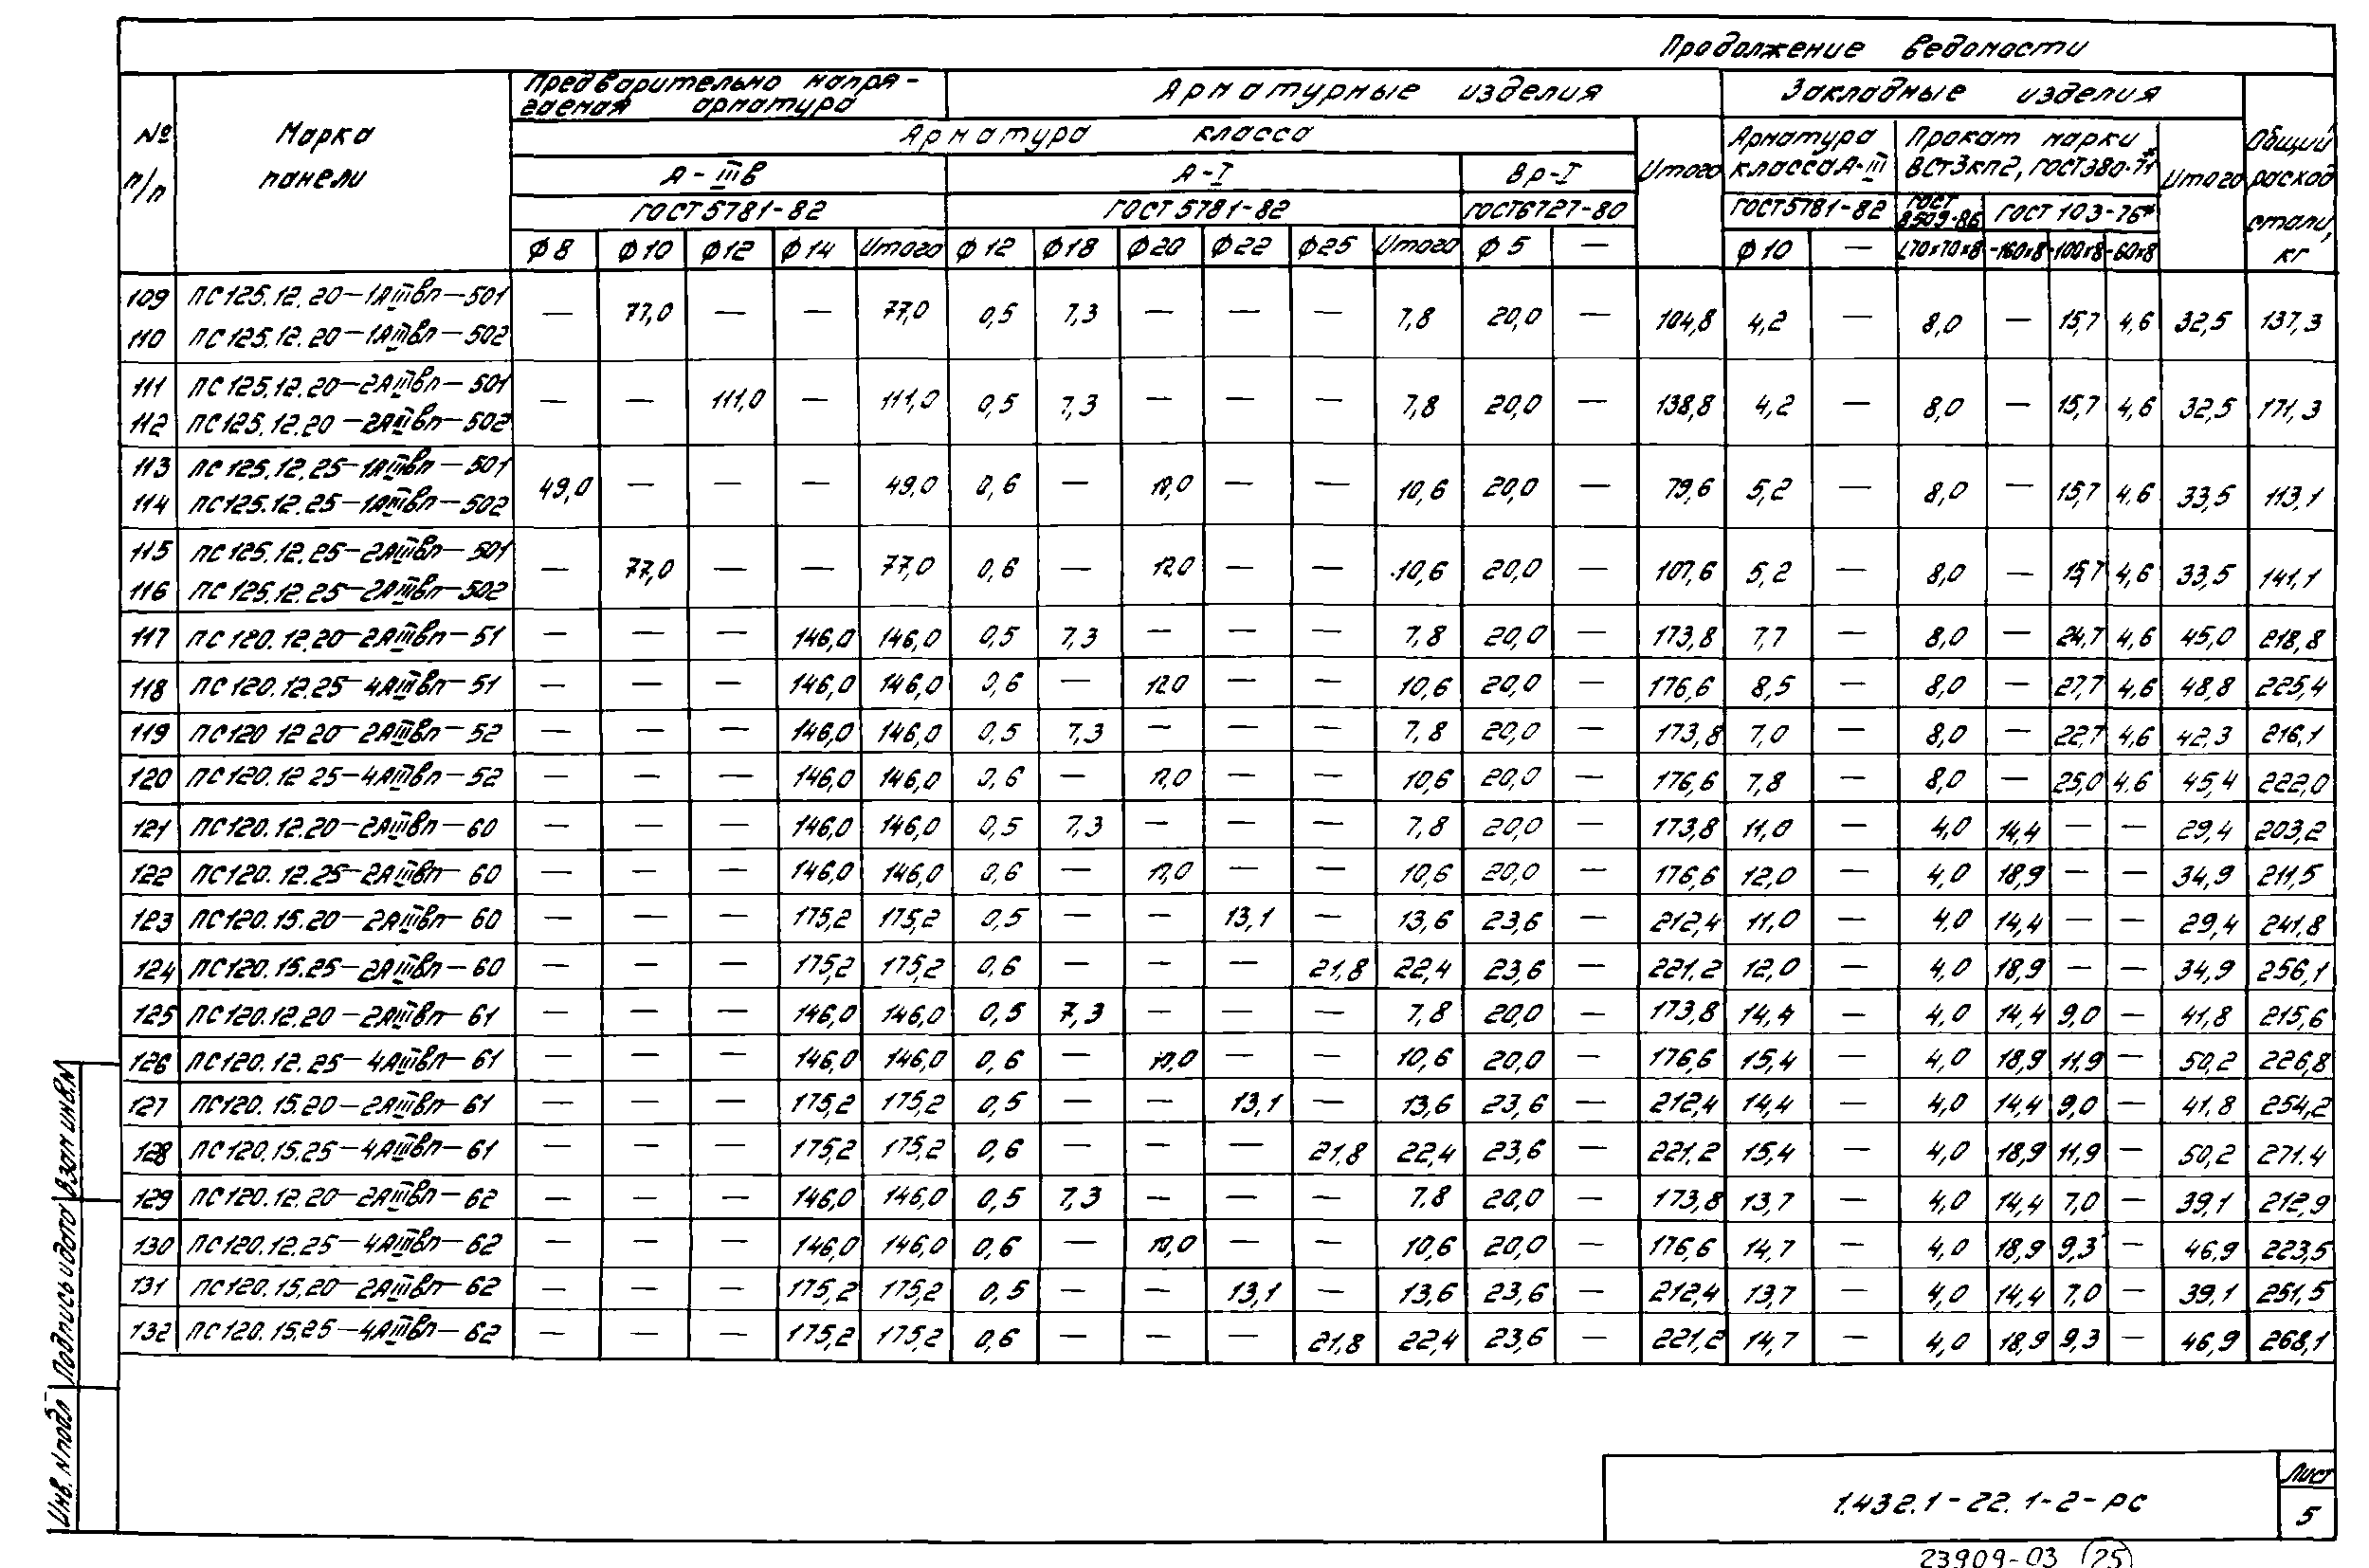 Продолжение ведомости
№ п/п | Марка панели | Предварительно напрягаемая арматура | Арматурные изделия | Закладные изделия | Общий расход стали, кг
Арматура класса | Итого | Арматура класса А-III | Прокат марки ВСт3кп2, ГОСТ 380-71* | Итого
А-IIIв | А-I | Вр-I
ГОСТ 5781-82 | ГОСТ 5781-82 | ГОСТ 6727-80 | ГОСТ 5781-82 | ГОСТ 8509-86 | ГОСТ 103-76*
ф8 | ф10 | ф12 | ф14 | Итого | ф12 | ф18 | ф20 | ф22 | ф25 | Итого | ф5 | — | ф10 | — | L70x70x8 | -160x8 | -100x8 | -60x8
109 ПС125.12.20-1АIIIвп-501
110 ПС125.12.20-1АIIIвп-502
— 77,0 — — 77,0 0,5 7,3 — — — 7,8 20,0 — 104,8 4,2 — 8,0 — 15,7 4,6 32,5 137,3
111 ПС125.12.20-2АIIIвп-501
112 ПС125.12.20-2АIIIвп-502
— — 111,0 — 111,0 0,5 7,3 — — — 7,8 20,0 — 138,8 4,2 — 8,0 — 15,7 4,6 32,5 171,3
113 ПС125.12.25-1АIIIвп-501
114 ПС125.12.25-1АIIIвп-502
49,0 — — — 49,0 0,6 — 10,0 — — 10,6 20,0 — 79,6 5,2 — 8,0 — 15,7 4,6 33,5 113,1
115 ПС125.12.25-2АIIIвп-501
116 ПС125.12.25-2АIIIвп-502
— 77,0 — — 77,0 0,6 — 10,0 — — 10,6 20,0 — 107,6 5,2 — 8,0 — 15,7 4,6 33,5 141,1
117 ПС120.12.20-2АIIIвп-51 — — — 146,0 146,0 0,5 7,3 — — — 7,8 20,0 — 173,8 7,7 — 8,0 — 24,7 4,6 45,0 218,8
118 ПС120.12.25-4АIIIвп-51 — — — 146,0 146,0 0,6 — 10,0 — — 10,6 20,0 — 176,6 8,5 — 8,0 — 27,7 4,6 48,8 225,4
119 ПС120 12 20-2АIIIвп-52 — — — 146,0 146,0 0,5 7,3 — — — 7,8 20,0 — 173,8 7,0 — 8,0 — 22,7 4,6 42,3 216,1
120 ПС120.12 25-4АIIIвп-52 — — — 146,0 146,0 0,6 — 10,0 — — 10,6 20,0 — 176,6 7,8 — 8,0 — 25,0 4,6 45,4 222,0
121 ПС120.12.20-2АIIIвп-60 — — — 146,0 146,0 0,5 7,3 — — — 7,8 20,0 — 173,8 11,0 — 4,0 14,4 — — 29,4 203,2
122 ПС120.12.25-2АIIIвп-60 — — — 146,0 146,0 0,6 — 10,0 — — 10,6 20,0 — 176,6 12,0 — 4,0 18,9 — — 34,9 211,5
123 ПС120.15.20-2АIIIвп-60 — — — 175,2 175,2 0,5 — — 13,1 — 13,6 23,6 — 212,4 11,0 — 4,0 14,4 — — 29,4 241,8
124 ПС120.15.25-2АIIIвп-60 — — — 175,2 175,2 0,6 — — — 21,8 22,4 23,6 — 221,2 12,0 — 4,0 18,9 — — 34,9 256,1
125 ПС120.12.20-2АIIIвп-61 — — — 146,0 146,0 0,5 7,3 — — — 7,8 20,0 — 173,8 14,4 — 4,0 14,4 9,0 — 41,8 215,6
126 ПС120.12.25-4АIIIвп-61 — — — 146,0 146,0 0,6 — 10,0 — — 10,6 20,0 — 176,6 15,4 — 4,0 18,9 11,9 — 50,2 226,8
127 ПС120.15.20-2АIIIвп-61 — — — 175,2 175,2 0,5 — — 13,1 — 13,6 23,6 — 212,4 14,4 — 4,0 14,4 9,0 — 41,8 254,2
128 ПС120.15.25-4АIIIвп-61 — — — 175,2 175,2 0,6 — — — 21,8 22,4 23,6 — 221,2 15,4 — 4,0 18,9 11,9 — 50,2 271.4
129 ПС120.12.20-2АIIIвп-62 — — — 146,0 146,0 0,5 7,3 — — — 7,8 20,0 — 173,8 13,7 — 4,0 14,4 7,0 — 39,1 212,9
130 ПС120.12.25-4АIIIвп-62 — — — 146,0 146,0 0,6 — 10,0 — — 10,6 20,0 — 176,6 14,7 — 4,0 18,9 9,3 — 46,9 223,5
131 ПС120.15.20-2АIIIвп-62 — — — 175,2 175,2 0,5 — — 13,1 — 13,6 23,6 — 212,4 13,7 — 4,0 14,4 7,0 — 39,1 251,5
132 ПС120.15.25-4АIIIвп-62 — — — 175,2 175,2 0,6 — — — 21,8 22,4 23,6 — 221,2 14,7 — 4,0 18,9 9,3 — 46,9 268,1
Инв. N подл Подпись и дата Взам инв.N
1.432.1-22.1-2-РС
Лист
5
23909-03 (25)